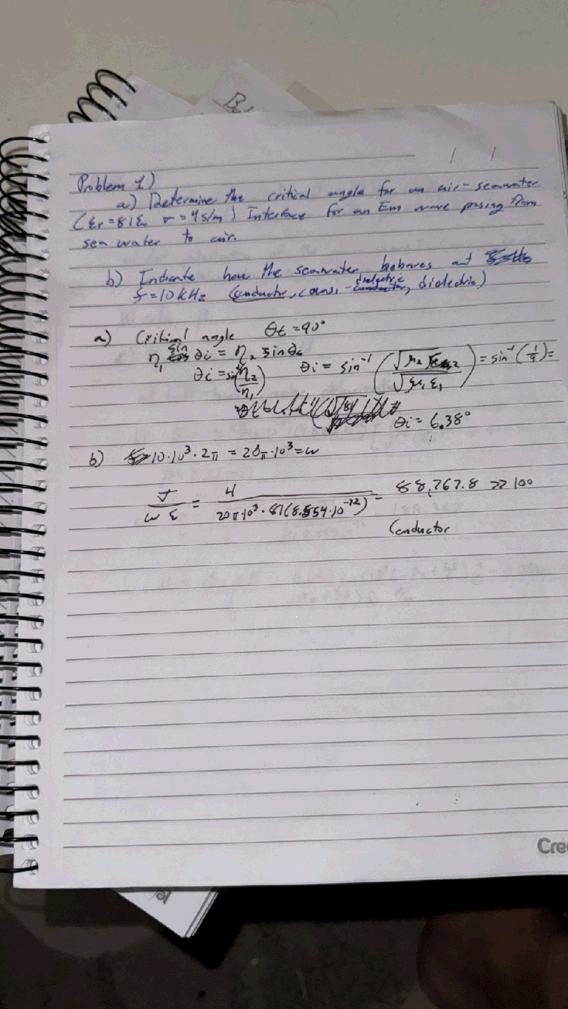 Problem 1)
a) Determine the critical angle for an air-seawater
(εr=81ε₀ σ=4 s/m) Interface for an Em wave posing from
sea water to air.
b) Indicate how the seawater behaves at
f=10 kHz (conductor, cuasi-dielectric, dielectric)
a) Critical angle θt=90°
η₁ sin θi = η₂ sin θt
θi = sin⁻¹(η₂/η₁) θi = sin⁻¹(√μ₂ε₂/√μ₁ε₁) = sin⁻¹(1/9)=
θi = 6.38°
b) 10·10³·2π = 20π·10³=ω
σ/ωε = 4/(20π·10³·81(8.854·10⁻¹²)) = 88,767.8 >> 100
Conductor
Cre